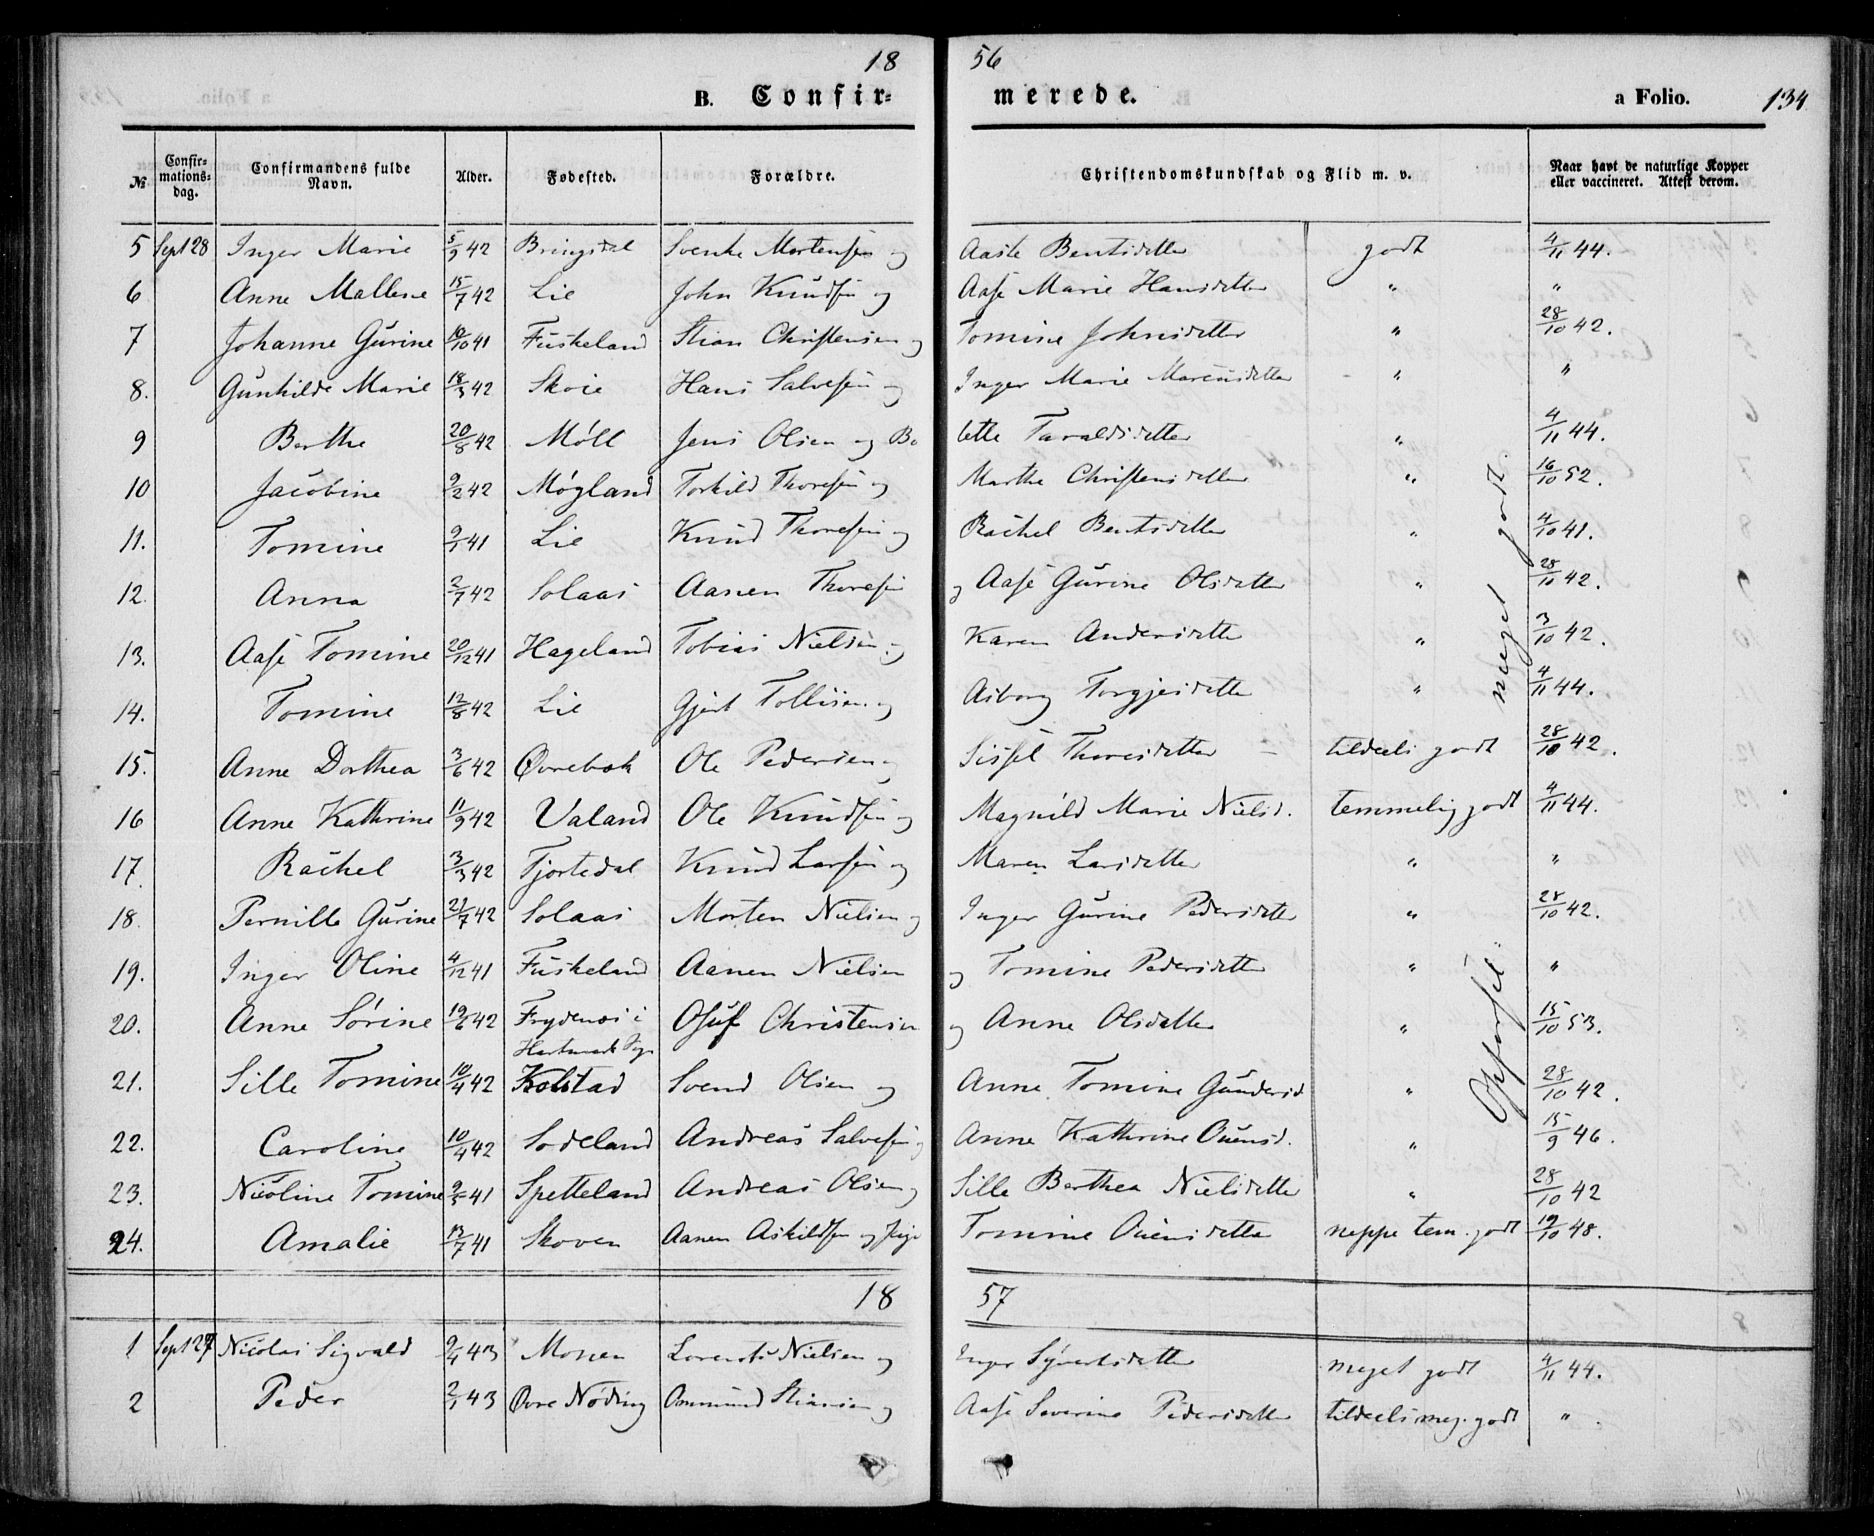 18 56
B. Confir= merede. a Folio. 134
№ Confir=mations=dag. Confirmandens fulde Navn. Alder. Fødested. Forældre. Christendomskundskab og Flid m. v. Naar havt de naturlige Kopper eller vaccineret. Attest derom.
5 Sept 28 Inger Marie 5/9 42 Bringsdal Svenke Mortensen og Aaste Bentsdatter godt 4/11 44.
6 Anne Mallene 15/7 42 Lie John Knudsen og Aase Marie Hansdatter " "
7 Johanne Gurine 10/10 41 Fuskeland Stian Christensen og Tomine Johnsdatter " 28/10 42.
8. Gunhilde Marie 18/3 42 Skoie Hans Salvesen og Inger Marie Marcusdatter - " "
9 Berthe 20/8 42 Møll Jens Olsen og Bo lette Taraldsdatter " 4/11 44.
10 Jacobine 9/2 42 Møgland Torkild Thoresen og Marthe Christensdatter " 16/10 52.
11. Tomine 9/1 41 Lie Knud Thoresen og Rachel Bentsdatter " 4/10 41.
12. Anna 2/7 42 Solaas Aanen Thoresen og Aase Gurine Olsdatter " 28/10 42.
13. Aase Tomine 20/12 41 Hageland Tobias Nielsen og Karen Andersdatter " 3/10 42.
14. Tomine 12/8 42 Lie Gjert Tollisen og Asborg Torgjesdatter " 4/11 44.
15. Anne Dorthea 3/6 42 Øvrebøk Ole Pedersen og Sissel Thoresdatter - tildeels godt 28/10 42.
16 Anne Kathrine 11/9 42 Valand Ole Knudsen og Magnild Marie Nielsd. temmelig godt 4/11 44.
17. Rachel 3/3 42 Fjortedal Knud Larsen og Maren Larsdatter " "
18. Pernille Gurine 21/7 42 Solaas Morten Nielsen og Inger Gurine Pedersdatter " 28/10 42.
19. Inger Oline 4/12 41 Fuskeland Aanen Nielsen og Tomine Pedersdatter " "
20. Anne Sørine 19/6 42 Frydenæs i Oluf Christensen og Anne Olsdatter " 15/10 53.
Hartmark
21. Sille Tomine 10/4 42 Kolstad Svend Olsen og Anne Tomine Gundersd. " 28/10 42.
22. Caroline 10/4 42 Sodeland Andreas Salvesen og Anne Kathrine Ouensd. " 15/9 46.
23. Nicoline Tomine 9/5 41 Spetteland Andreas Olsen og Sille Berthea Nielsdatter " 28/10 42
24. Amalie 13/7 41 Skoven Aanen Askildsen og Tomine Ouensdatter neppe tem. godt 19/10 48.
Opførsel meget godt.
18 57
1 Sept 27 Nicolai Sigvald 9/4 43 Monen Lorents Nielsen og Inger Syvertsdatter meget godt 4/11 44.
2 Peder 2/1 43 Øvre Nøding Ommund Stiansen og Aase Severine Pedersdatter tildeels meg. godt "